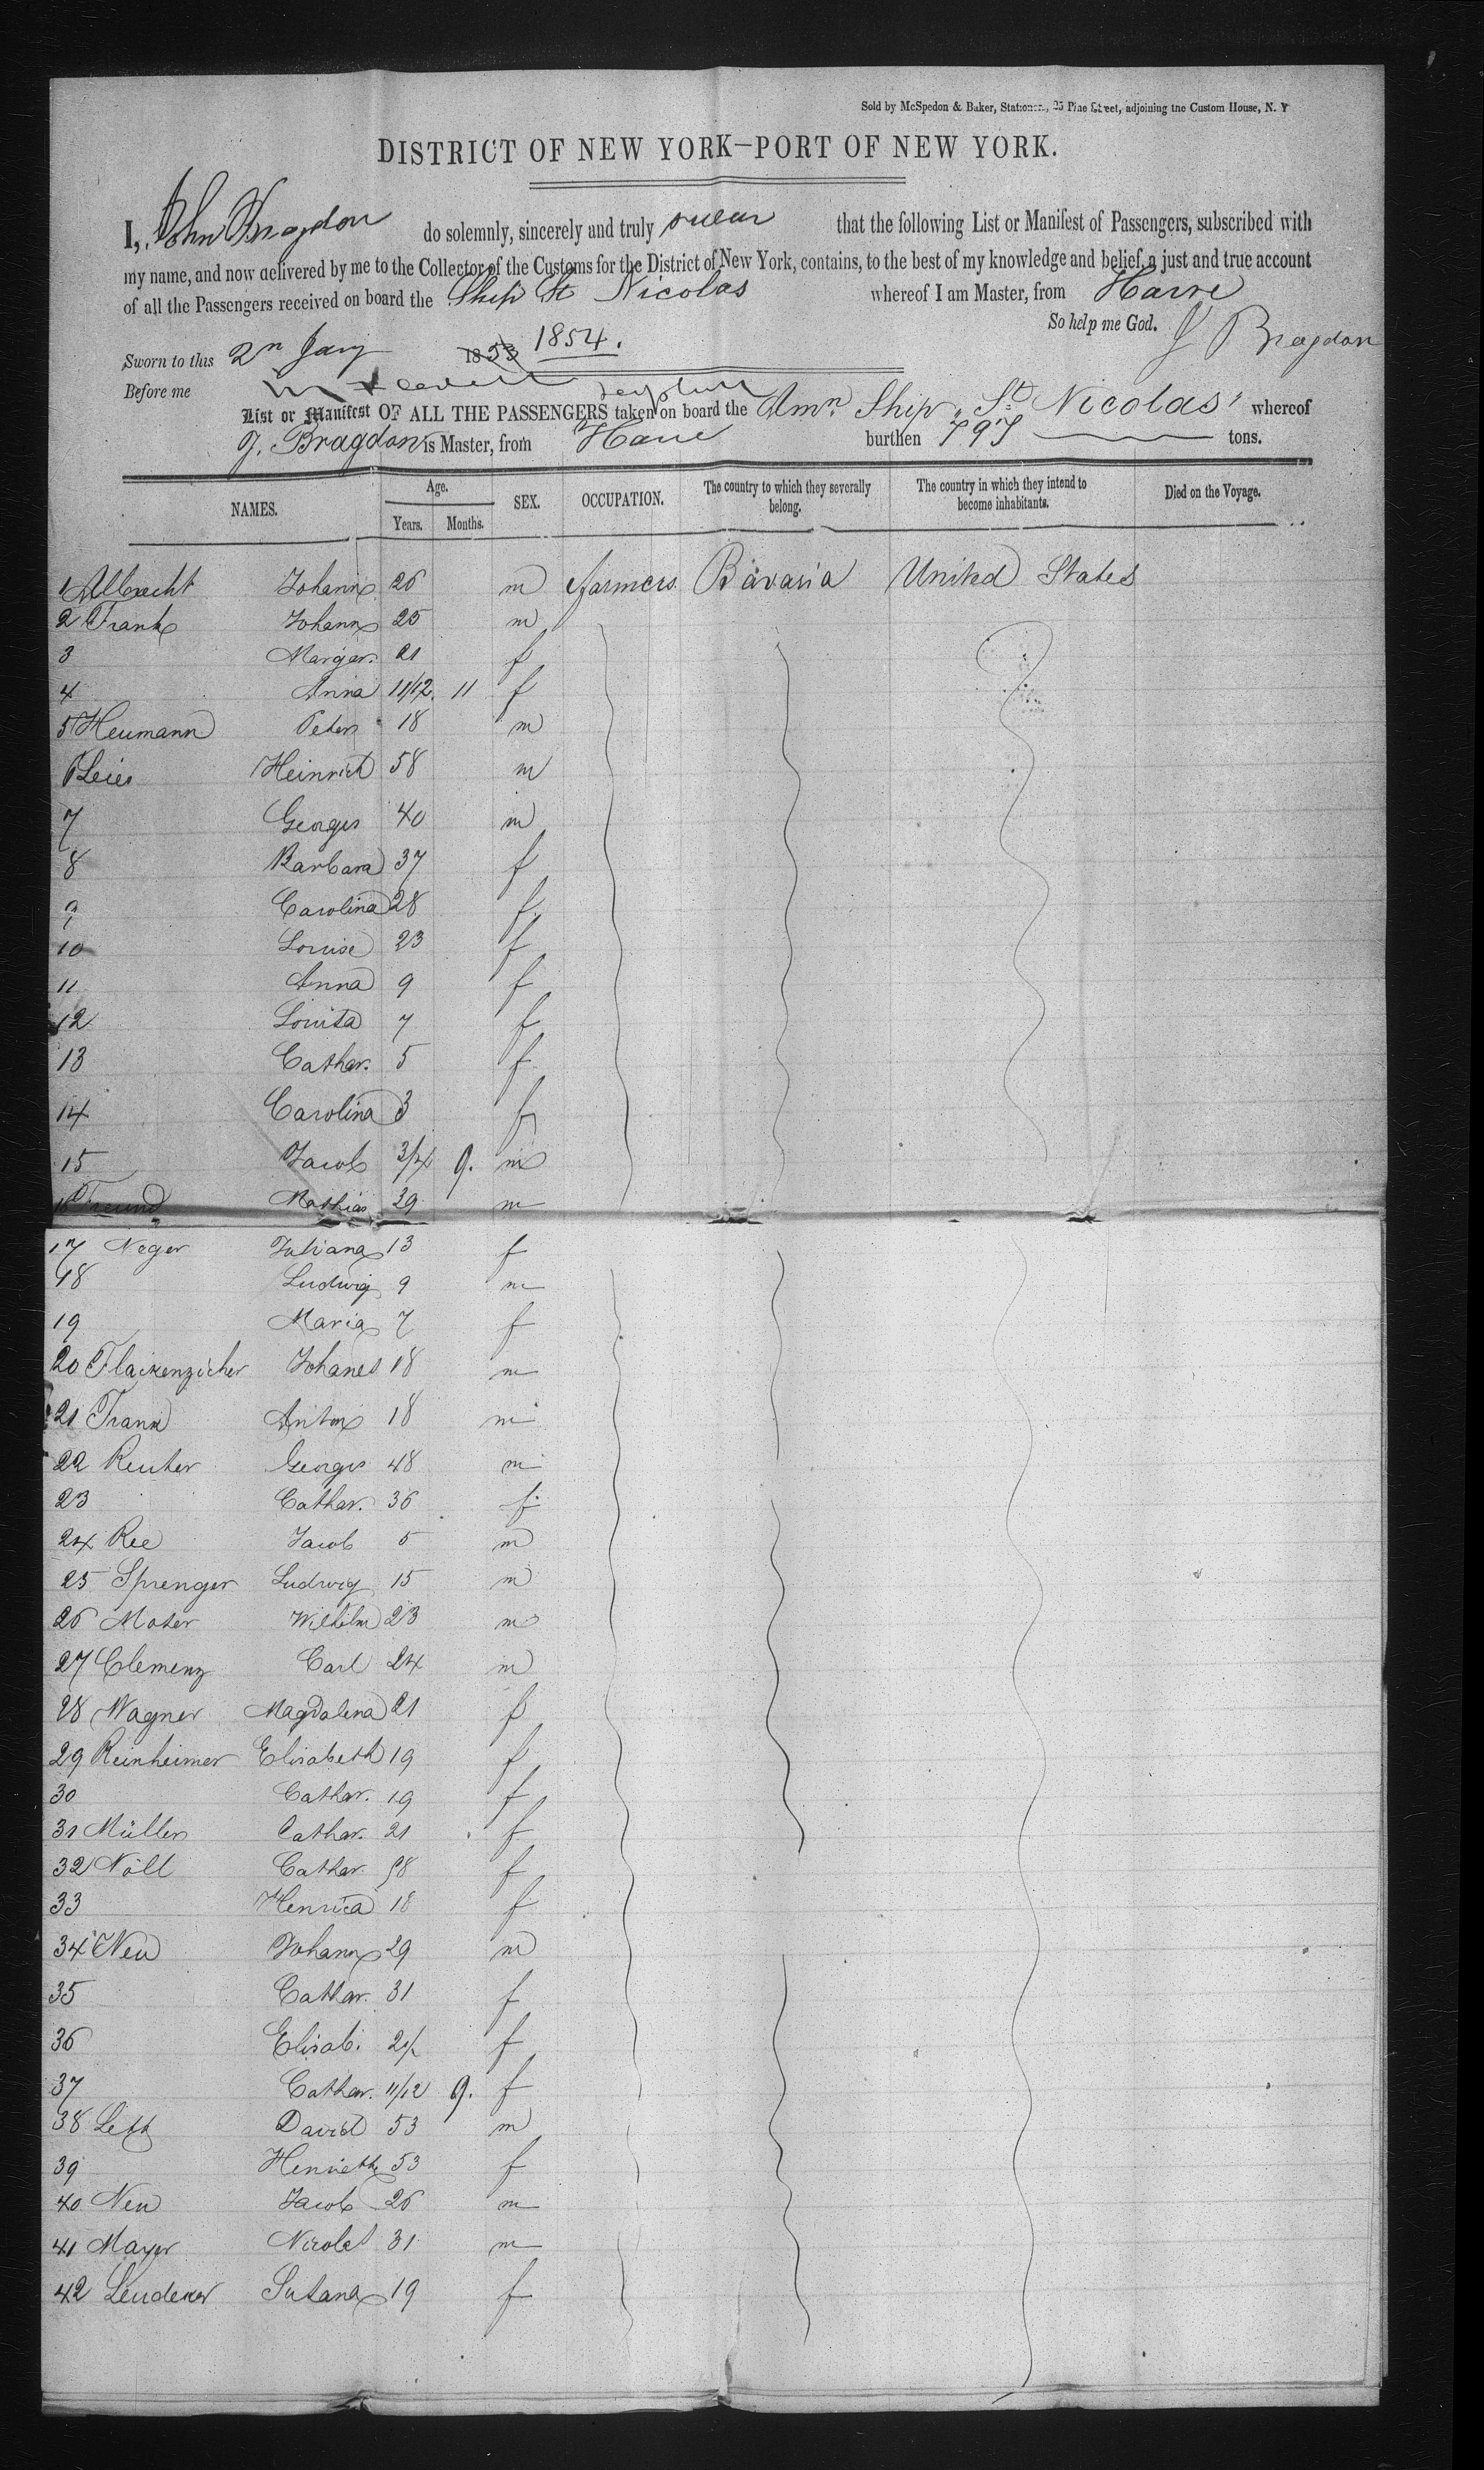 Sold by McSpedon & Baker, Stationers, 25 Pine Street, adjoining the Custom House, N. Y
DISTRICT OF NEW YORK—PORT OF NEW YORK.
I, John Bragdon do solemnly, sincerely and truly swear that the following List or Manifest of Passengers, subscribed with
my name, and now delivered by me to the Collector of the Customs for the District of New York, contains, to the best of my knowledge and belief, a just and true account
of all the Passengers received on board the Ship St Nicolas whereof I am Master, from Havre
So help me God. J Bragdon
Sworn to this 2n Jany 1853 1854.
Before me
List or Manifest OF ALL THE PASSENGERS taken on board the Amn. Ship "St Nicolas" whereof
J. Bragdon is Master, from Havre burthen 797 tons.
NAMES. Age. Years. Months. SEX. OCCUPATION. The country to which they severally belong. The country in which they intend to become inhabitants. Died on the Voyage.
1 Albrecht Johann 26 m farmers Bavaria United States
2 Frank Johann 25 m
3 Margar. 21 f
4 Anna 11/12. 11 f
5 Heumann Peter 18 m
6 Leies Heinrich 58 m
7 Georges 40 m
8 Barbara 37 f
9 Carolina 28 f.
10 Louise 23 f
11 Anna 9 f
12 Louisa 7 f
13 Cathar. 5 f
14 Carolina 3 f
15 Jacob 3/4 9. m
16 Freund Mathias 39 m
17 Neger Juliana 13 f
18 Ludwig 9 m
19 Maria 7 f
20 Johanes 18 m
21 Frank Anton 18 m
22 Reuter Georges 48 m
23 Cathar. 36 f
24 Ree Jacob 5 m
25 Sprenger Ludwig 15 m
26 Moser Wilhelm 23 m
27 Clemenz Carl 24 m
28 Wagner Magdalena 21 f
29 Reinheimer Elisabeth 19 f
30 Cathar. 19 f
31 Müller Cathar. 21 f
32 Nöll Cathar. 58 f
33 Henrica 18 f
34 Neu Johann 29 m
35 Cathar. 31 f
36 Elisab. f
37 Cathar. 11/12 9. f
38 David 53 m
39 Henrieth 53 f
40 Neu Jacob 26 m
41 Mayer Nicolas 31 m
42 Susana 19 f